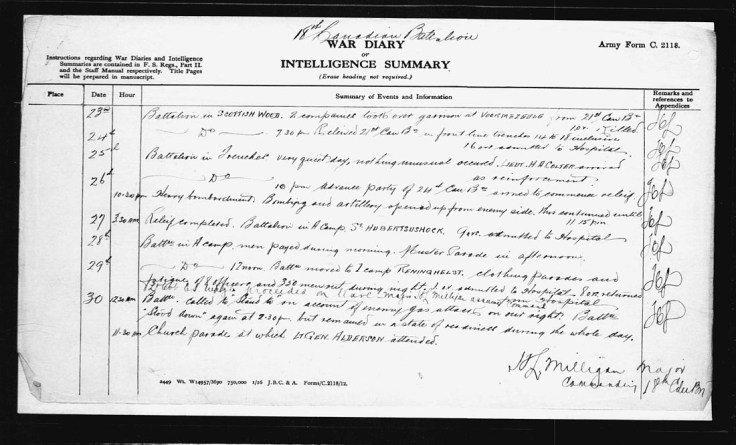 18th Canadian Battalion
WAR DIARY
or
INTELLIGENCE SUMMARY.
(Erase heading not required.)
Army Form C. 2118.
Instructions regarding War Diaries and Intelligence
Summaries are contained in F. S. Regs., Part II.
and the Staff Manual respectively. Title Pages
will be prepared in manuscript.
Place Date Hour Summary of Events and Information Remarks and references to Appendices
23rd Battalion in SCOTTISH WOOD. 2 companies took over garrison at VOORMEZEELE from 21st Can Bn
1 or Killed
24th Do 7 30 pm Relieved 21st Can Bn in front line trenches 14 to 18 inclusive
16 ors admitted to Hospital
25th Battalion in Trenches very quiet day, nothing unusual occured. LIEUT. H.A. COLTER arrived
as reinforcement
26th Do 10 pm advance party of 24th Can Bn arrived to commence relief
10-20 pm Heavy bombardment. Bombing and artillery opened up from enemy side, this continued until
11/15 pm
27 3.30 am Relief completed. Battalion in A Camp St HUBERTSUSHOCK. admitted to Hospital
28th Battn in A camp, men payed during morning. Muster Parade in afternoon.
29th Do 12 noon. Battn moved to I camp RENINGHELST. Clothing parades and
fatigue of 8 officers and 350 men out during night. 1 or admitted to Hospital. 8 or returned
proceeded on leave Major H. Milligan from Hospital
30 12.30 am Battn. called to "Stand to" on account of enemy gas attack on our right. Battn
"Stood down" again at 2-30 pm. but remained in a state of readiness during the whole day.
11-30 am Church parade at which Lt GEN. HLDERSON attended.
H L Milligan Major
Commanding 18th Can Bn
2449 Wt. W14957/M90 750,000 1/16 J.B.C. & A. Forms/C.2118/12.